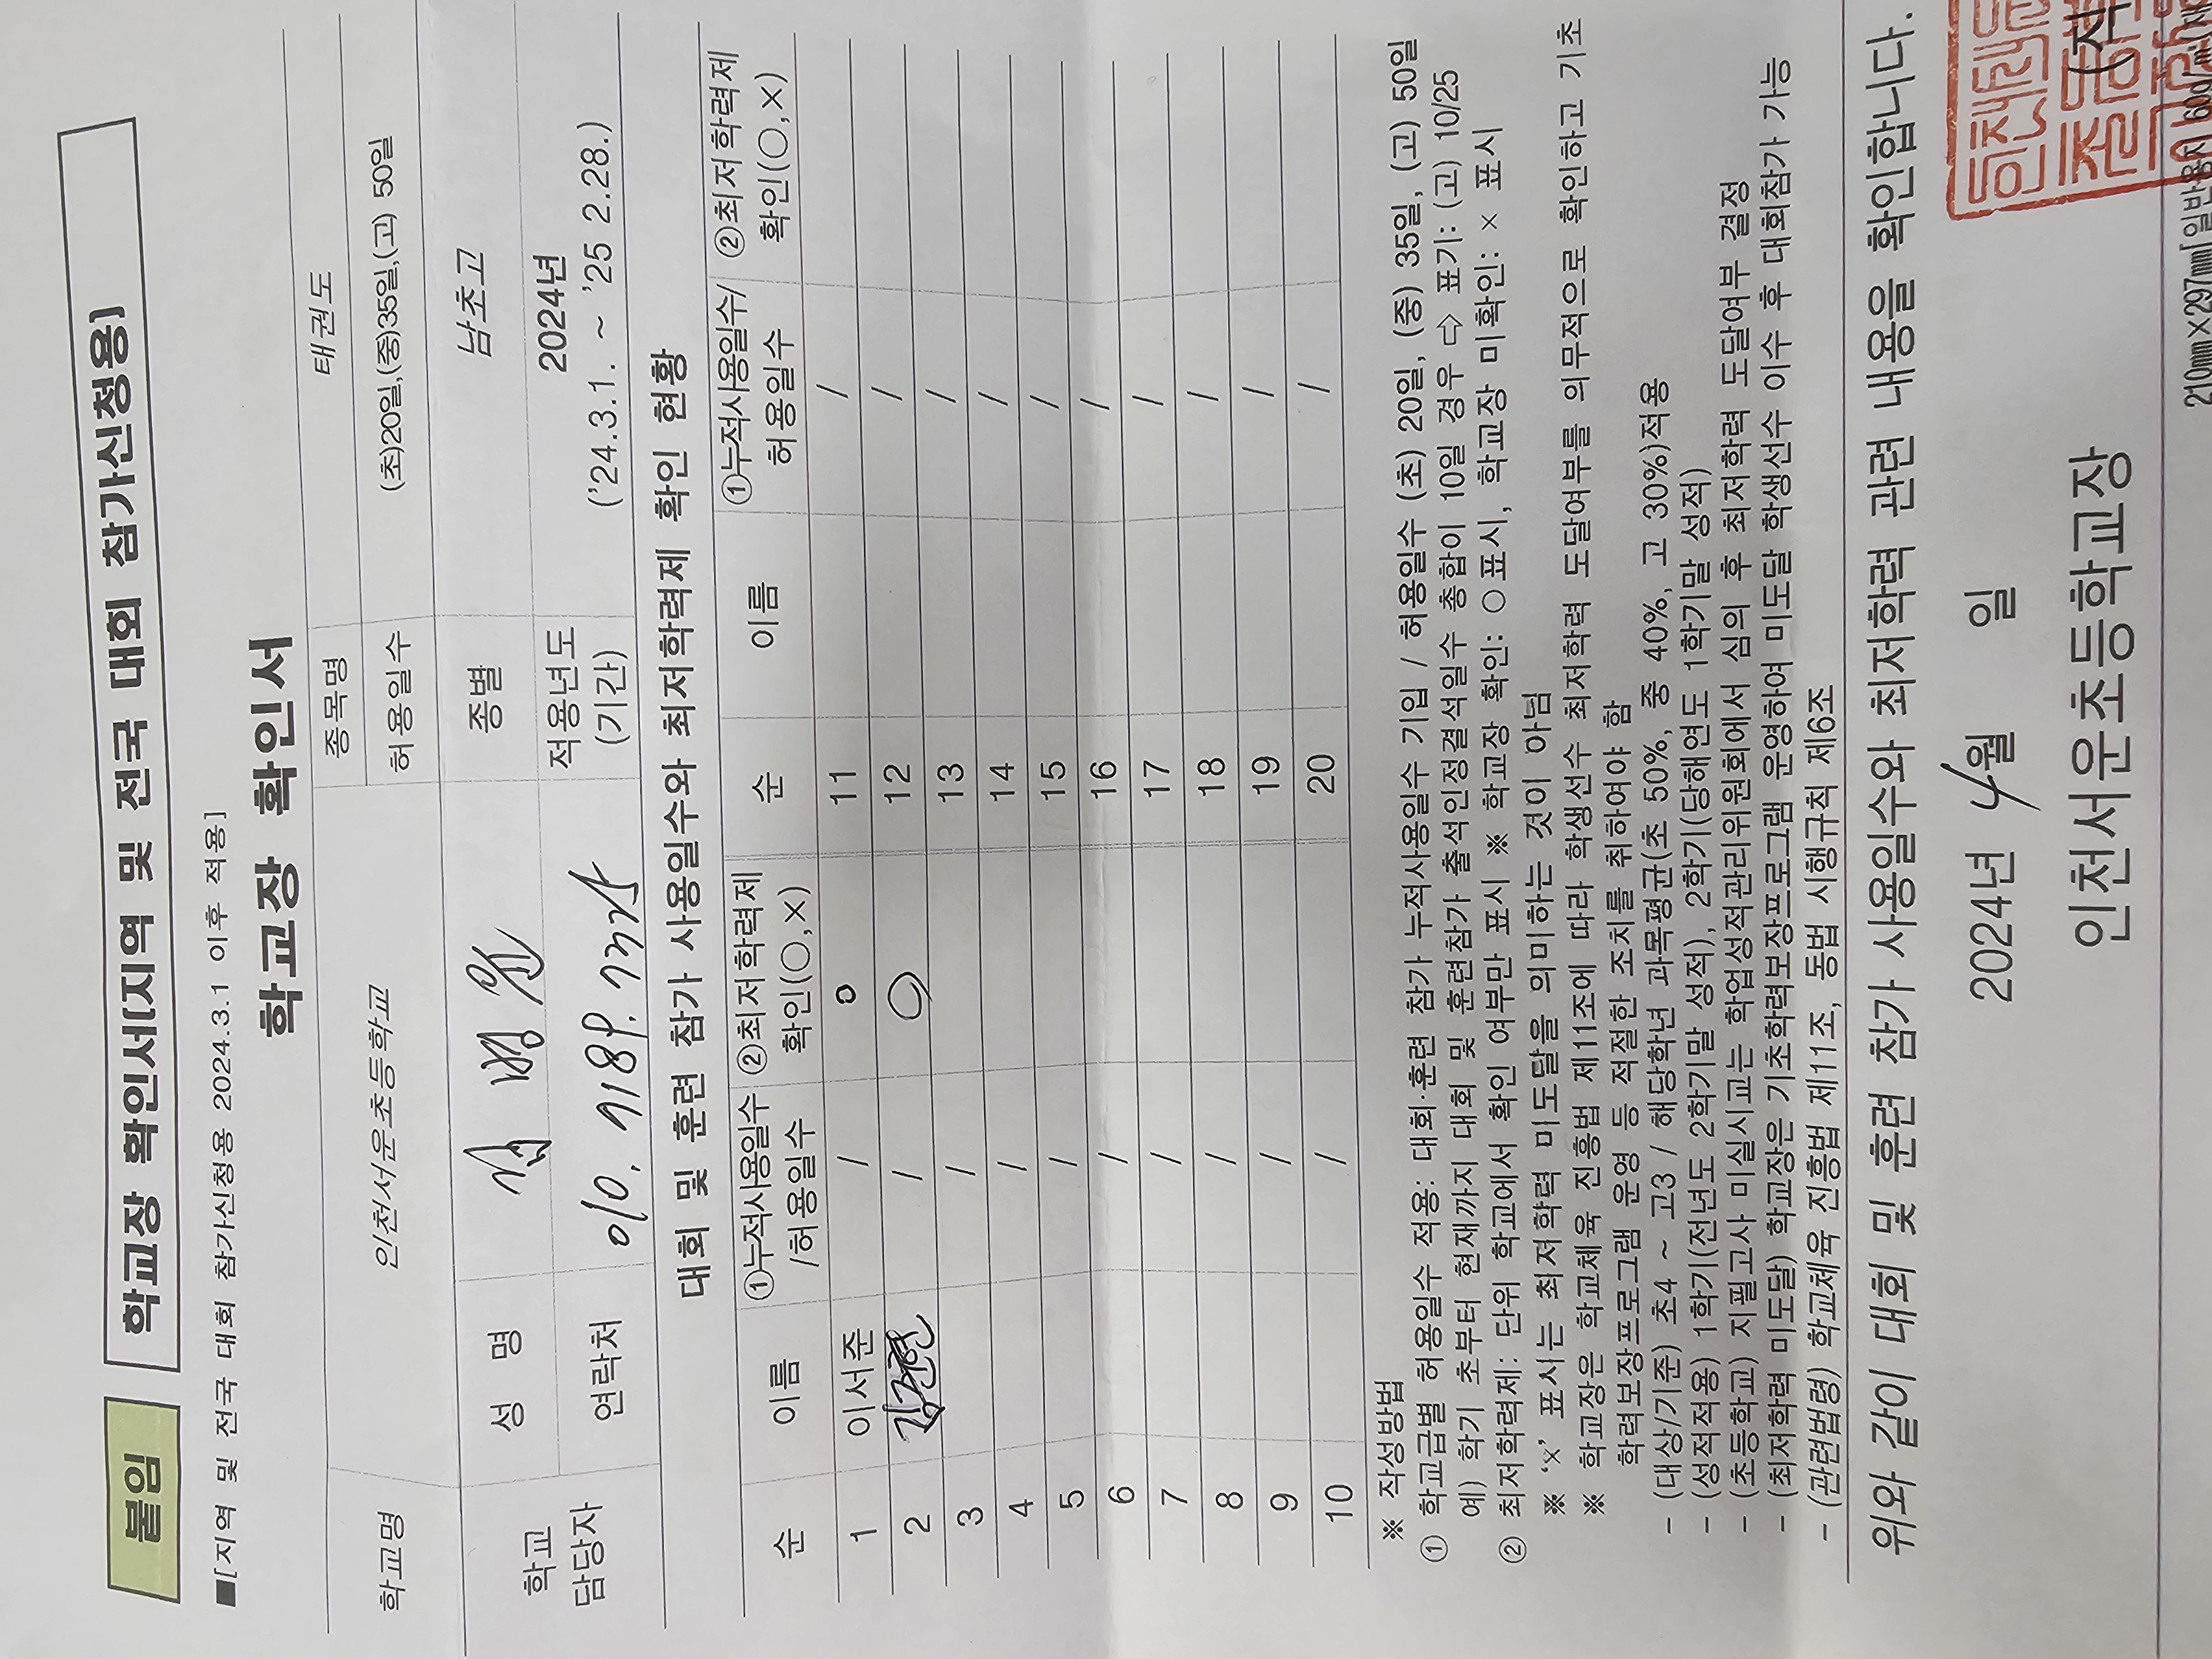 붙임 학교장 확인서(지역 및 전국 대회 참가신청용)
■[지역 및 전국 대회 참가신청용 2024.3.1 이후 적용]
학교장 확인서
학교명 인천서운초등학교 종목명 태권도
허용일수 (초)20일,(중)35일,(고) 50일
학교 담당자 성 명 종별 남초고
연락처 010. 9189. 적용년도 (기간) 2024년
('24.3.1. ~ '25 2.28.)
대회 및 훈련 참가 사용일수와 최저학력제 확인 현황
순 이름 ①누적사용일수 /허용일수 ②최저학력제 확인(○,×) 순 이름 ①누적사용일수/ 허용일수 ②최저학력제 확인(○,×)
1 이서준 / o 11 /
2 / ○ 12 /
3 / 13 /
4 / 14 /
5 / 15 /
6 / 16 /
7 / 17 /
8 / 18 /
9 / 19 /
10 / 20 /
※ 작성방법
① 학교급별 허용일수 적용: 대회·훈련 참가 누적사용일수 기입 / 허용일수 (초) 20일, (중) 35일, (고) 50일
예) 학기 초부터 현재까지 대회 및 훈련참가 출석인정결석일수 총합이 10일 경우 ⇨ 표기: (고) 10/25
② 최저학력제: 단위 학교에서 확인 여부만 표시 ※ 학교장 확인: ○ 표시, 학교장 미확인: × 표시
※ '×' 표시는 최저학력 미도달을 의미하는 것이 아님
※ 학교장은 학교체육 진흥법 제11조에 따라 학생선수 최저학력 도달여부를 의무적으로 확인하고 기초
학력보장프로그램 운영 등 적절한 조치를 취하여야 함
- (대상/기준) 초4 ~ 고3 / 해당학년 과목평균(초 50%, 중 40%, 고 30%)적용
- (성적적용) 1학기(전년도 2학기말 성적), 2학기(당해연도 1학기말 성적)
- (초등학교) 지필고사 미실시교는 학업성적관리위원회에서 심의 후 최저학력 도달여부 결정
- (최저학력 미도달) 학교장은 기초학력보장프로그램 운영하여 미도달 학생선수 이수 후 대회참가 가능
- (관련법령) 학교체육 진흥법 제11조, 동법 시행규칙 제6조
위와 같이 대회 및 훈련 참가 사용일수와 최저학력 관련 내용을 확인합니다.
2024년 4월 일
인천서운초등학교장 (직
210mm×297mm[일반용지 60g/㎡(재